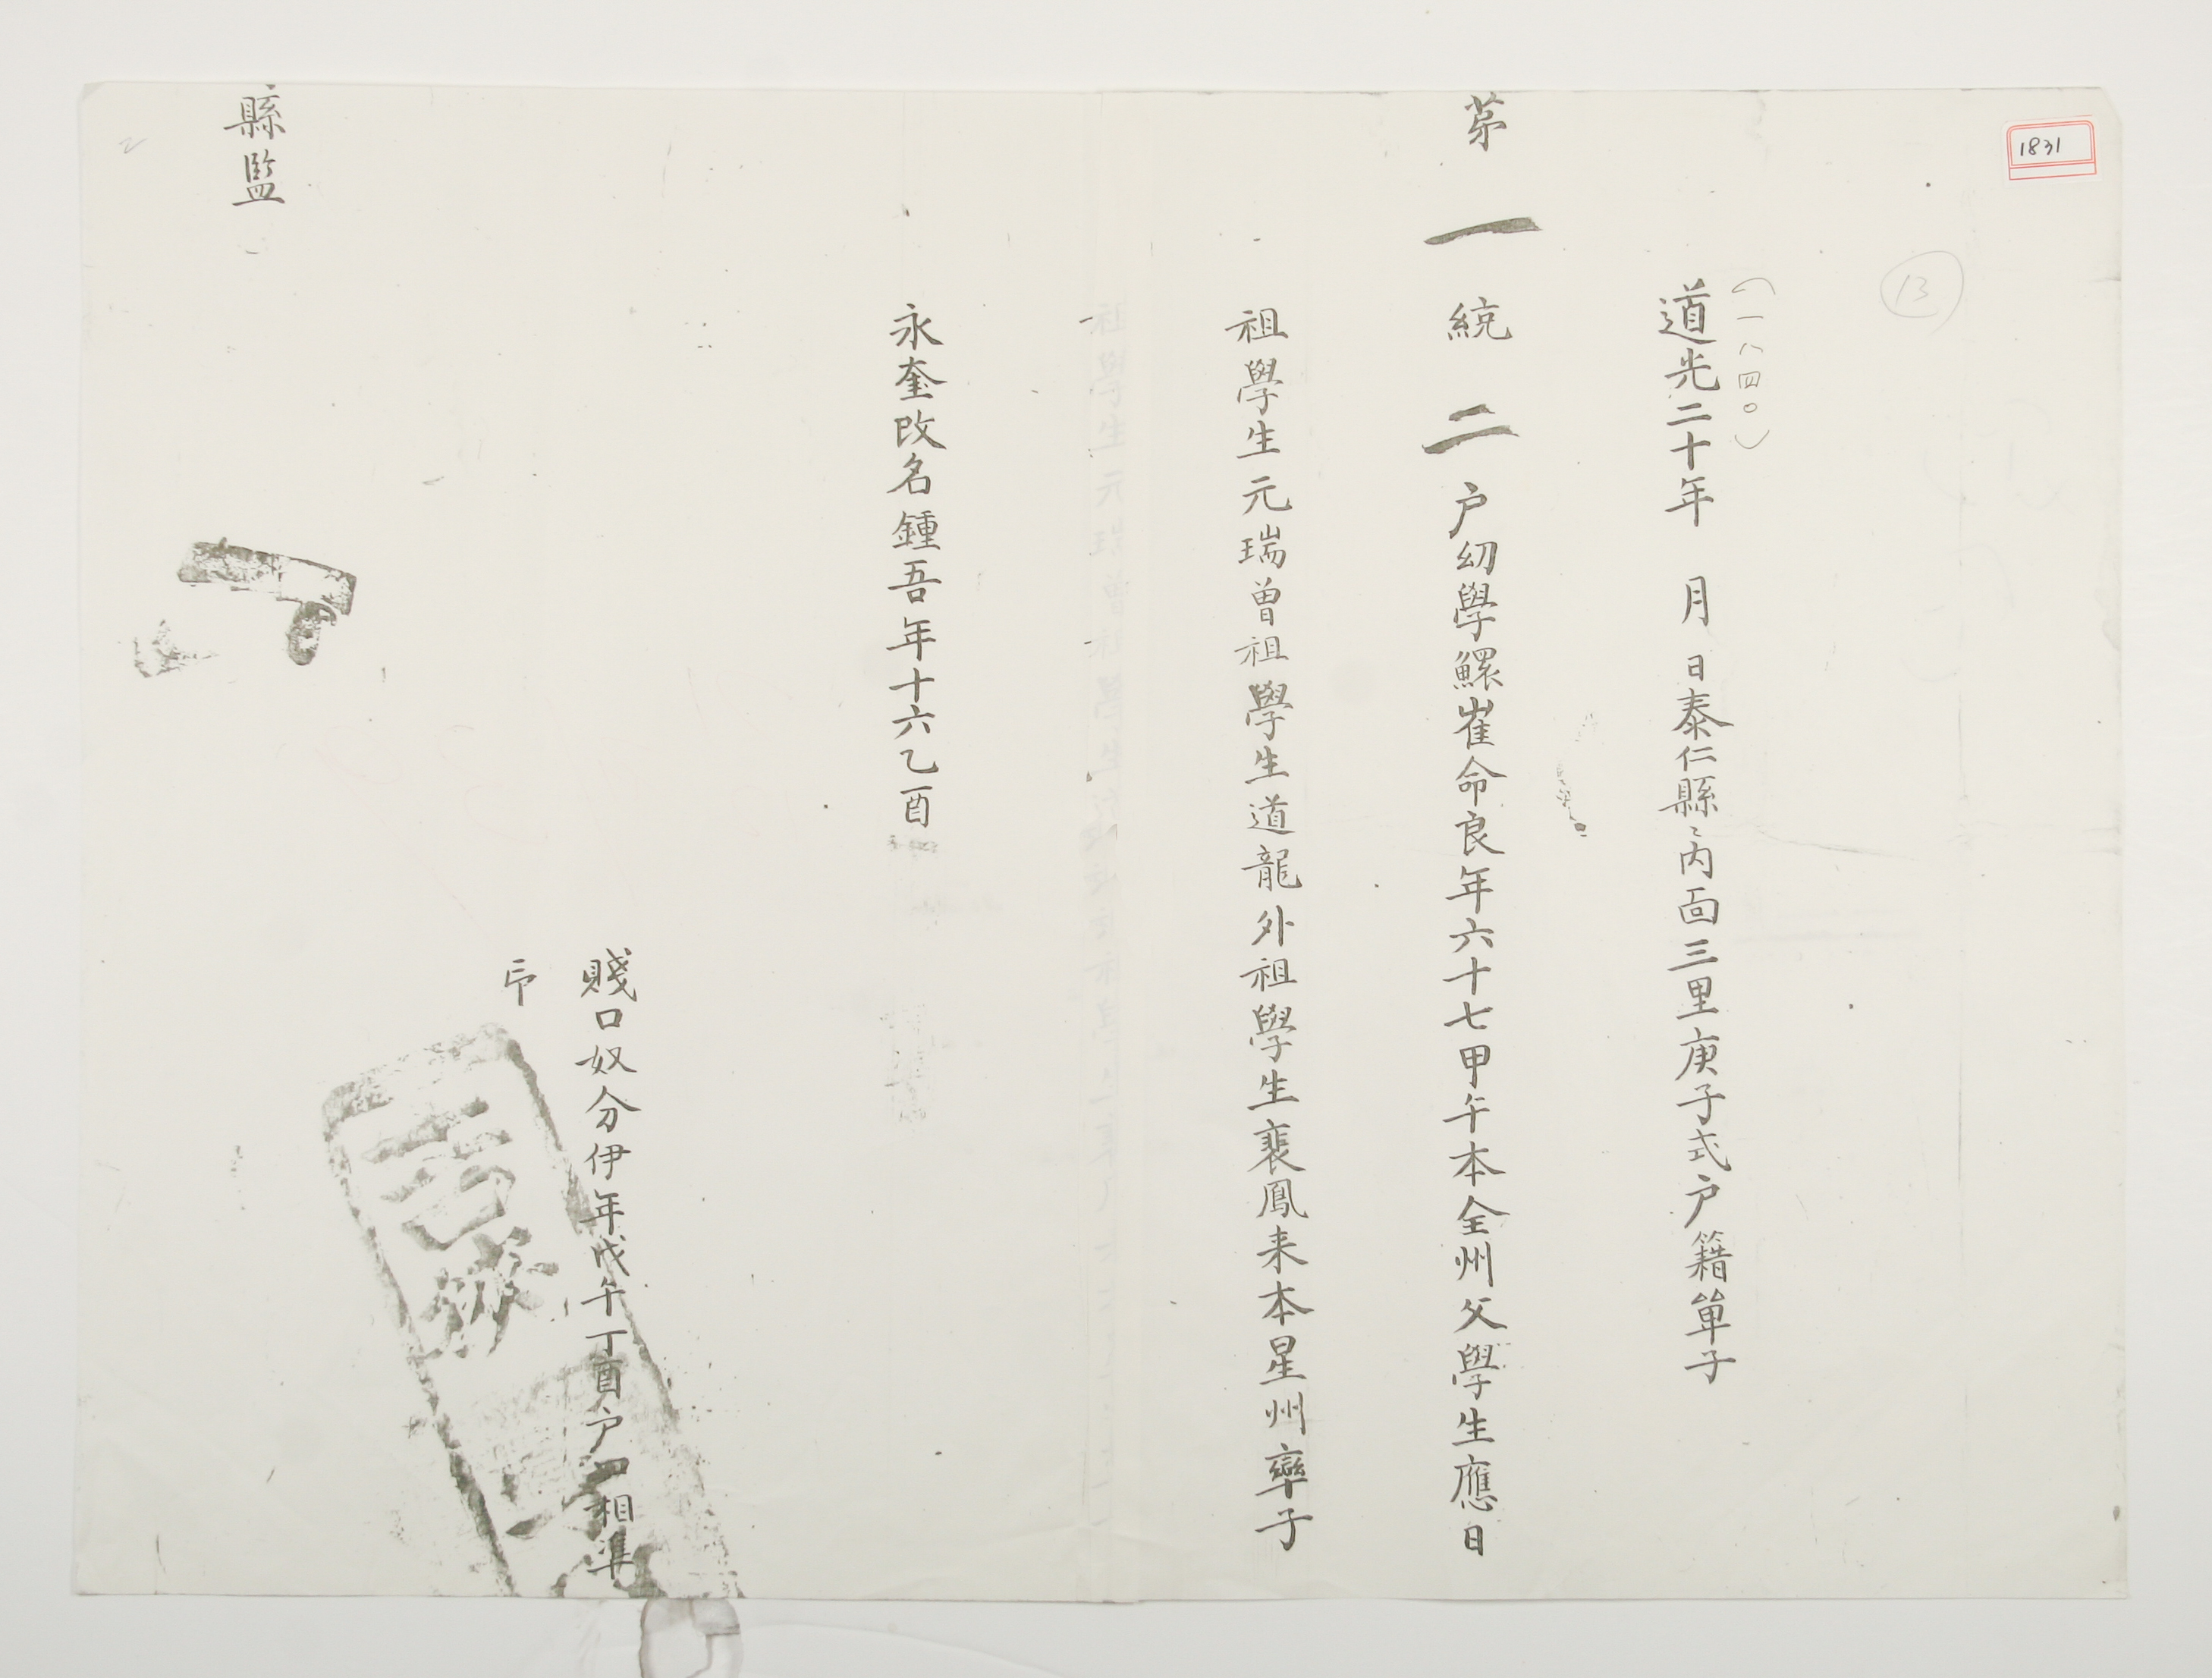 1831
13
(一八四〇)
道光二十年 月 日泰仁縣〻內面三里庚子式戶籍單子
苐一統二戶幼學鰥崔命良年六十七甲午本全州父學生應日
祖學生元瑞曾祖學生道龍外祖學生裵鳳来本星州率子
永奎改名鍾吾年十六乙酉
賤口奴分伊年戊午丁酉戶口相準
印
縣監